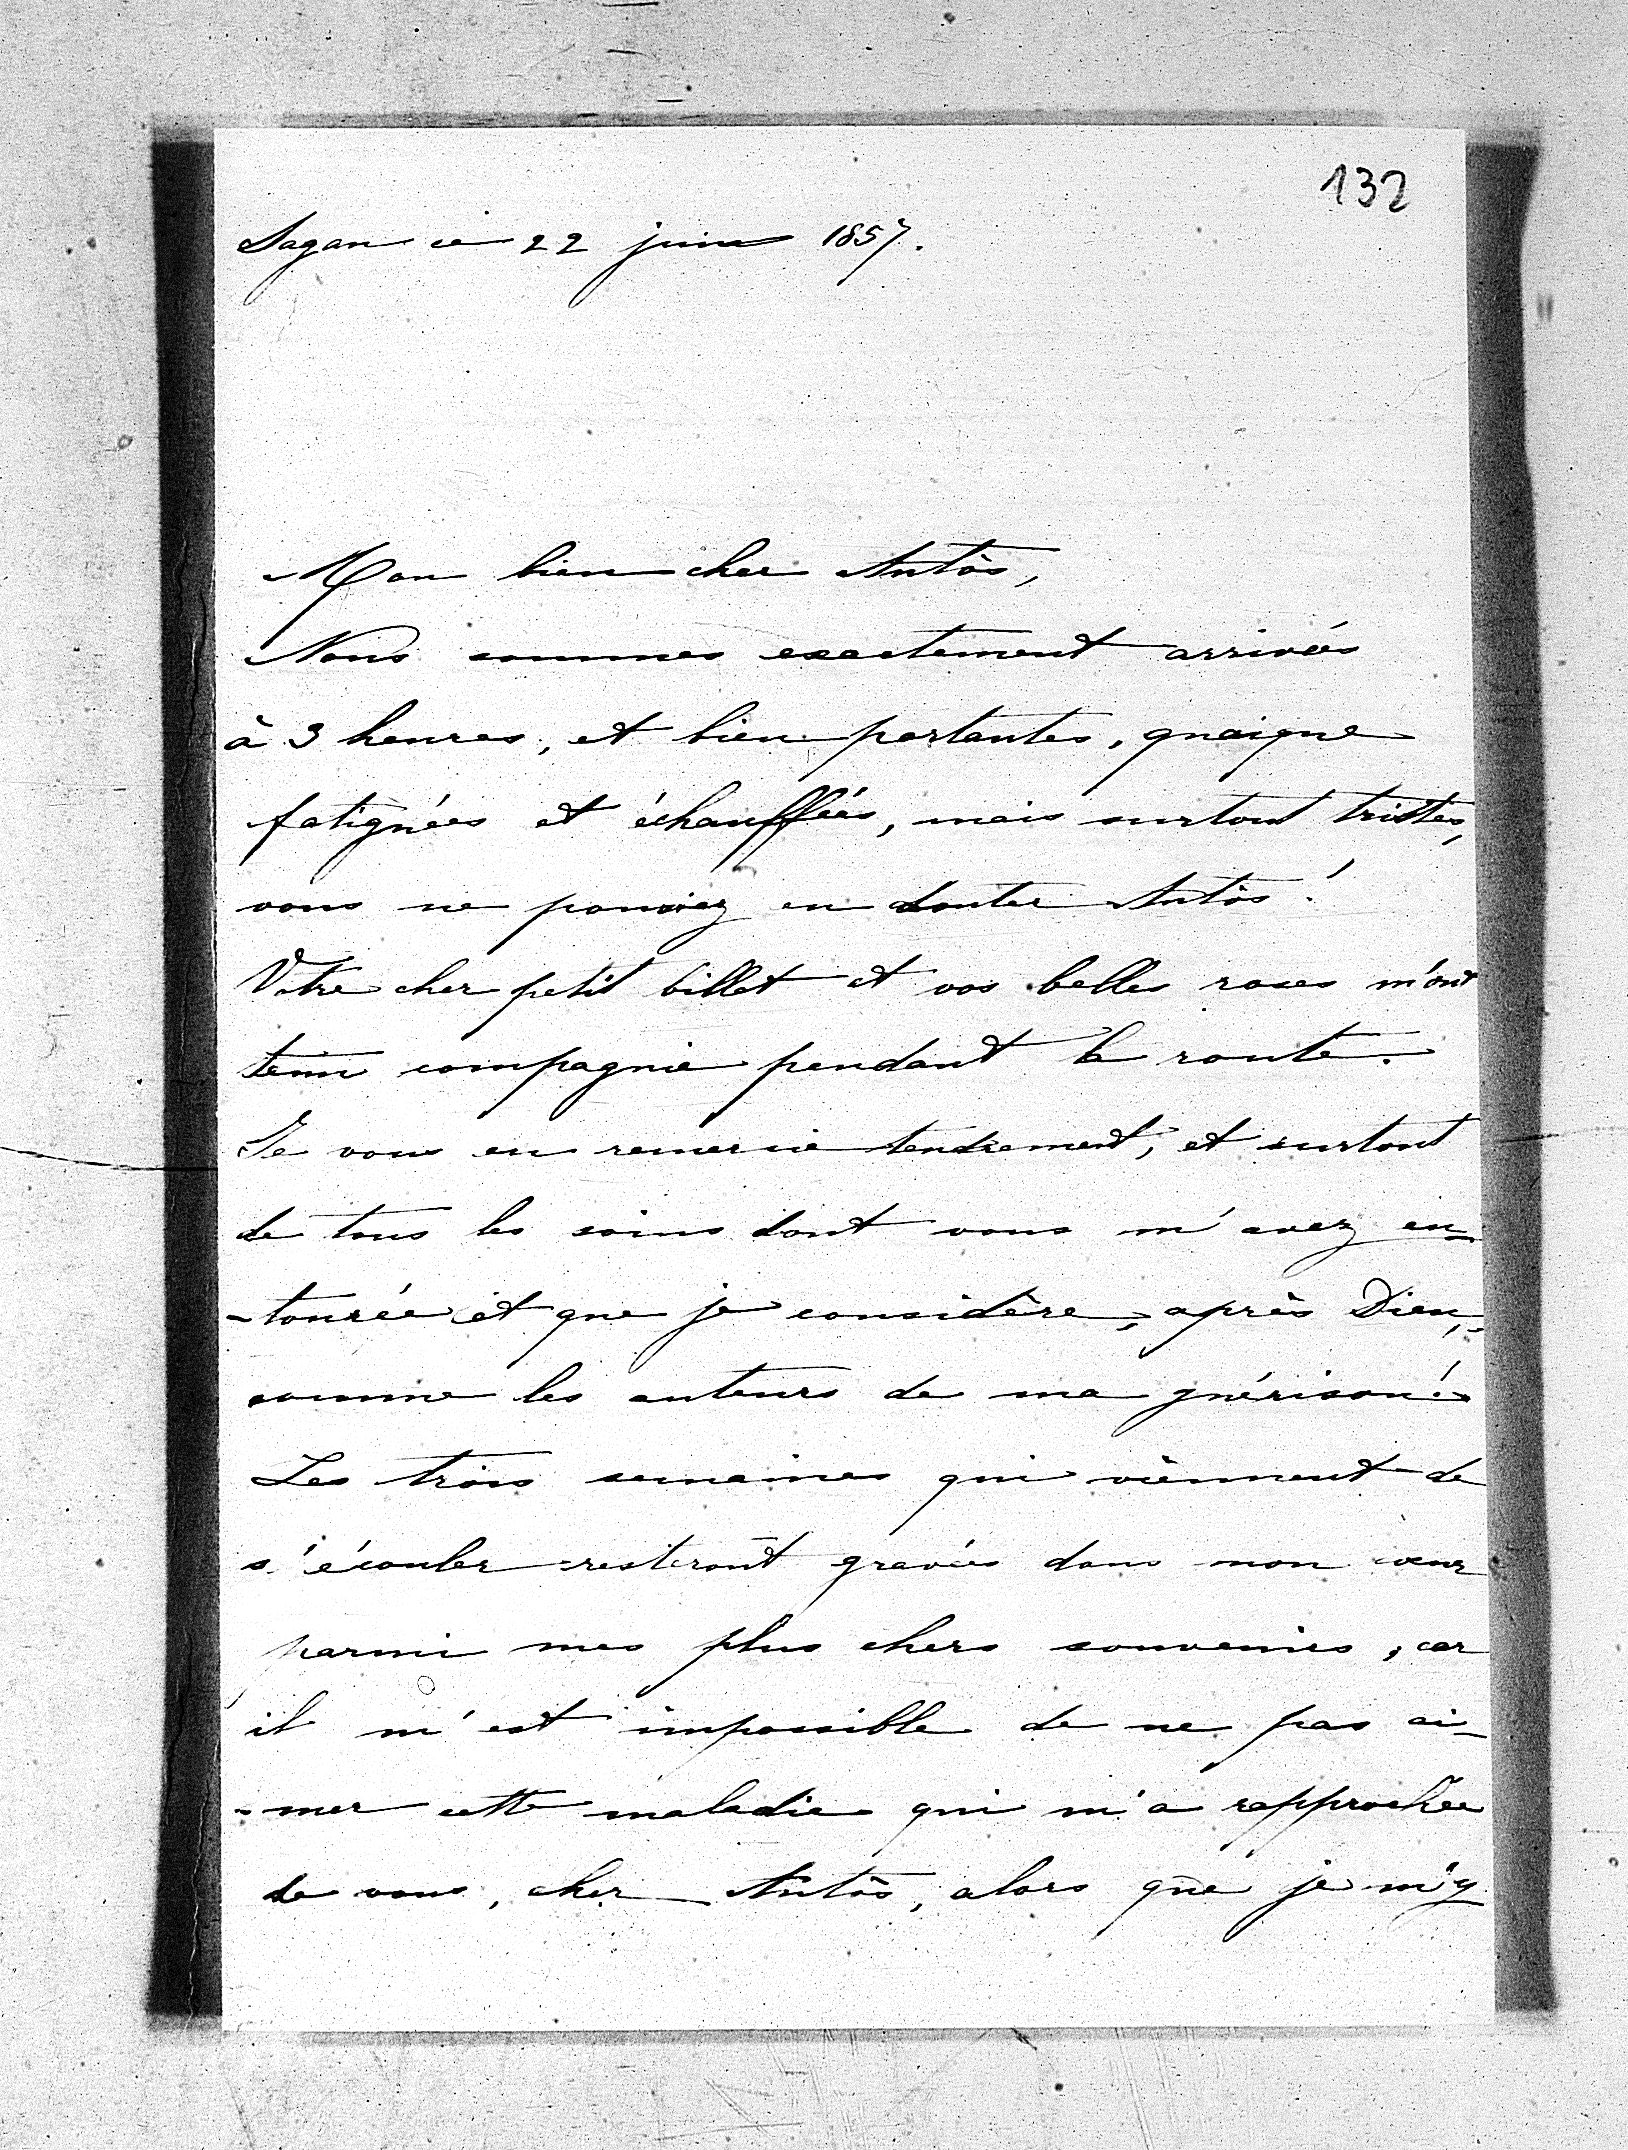 132
Sagan ce 22 juin 1857.
Mon bien cher Antôs,
Nous sommes exactement arrivées
à 3 heures, et bien portantes, quoique
fatiguées et échauffées, mais surtout tristes,
vous ne pouviez en douter Antôs!
Votre cher petit billet et vos belles roses m'ont
tenu compagnie pendant la route.
Je vous en remercie tendrement, et surtout
de tous les soins dont vous m'avez en-
-tourée et que je considère, après Dieu,
comme les auteurs de ma guérison!
Les trois semaines qui viennent de
s'écouler resteront gravées dans mon cœur
parmi mes plus chers souvenirs, car
il m'est impossible de ne pas ai-
-mer cette maladie qui m'a rapprochée
de vous, cher Antôs, alors que je m'y